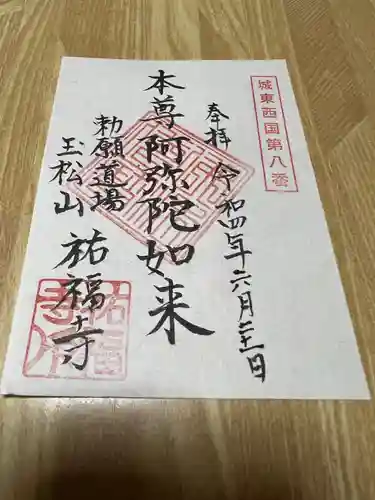 城東西国第八番
奉拝 令和四年六月二十一日
本尊 阿弥陀如来
勅願道場
玉松山 祐福寺
祐福
寺印